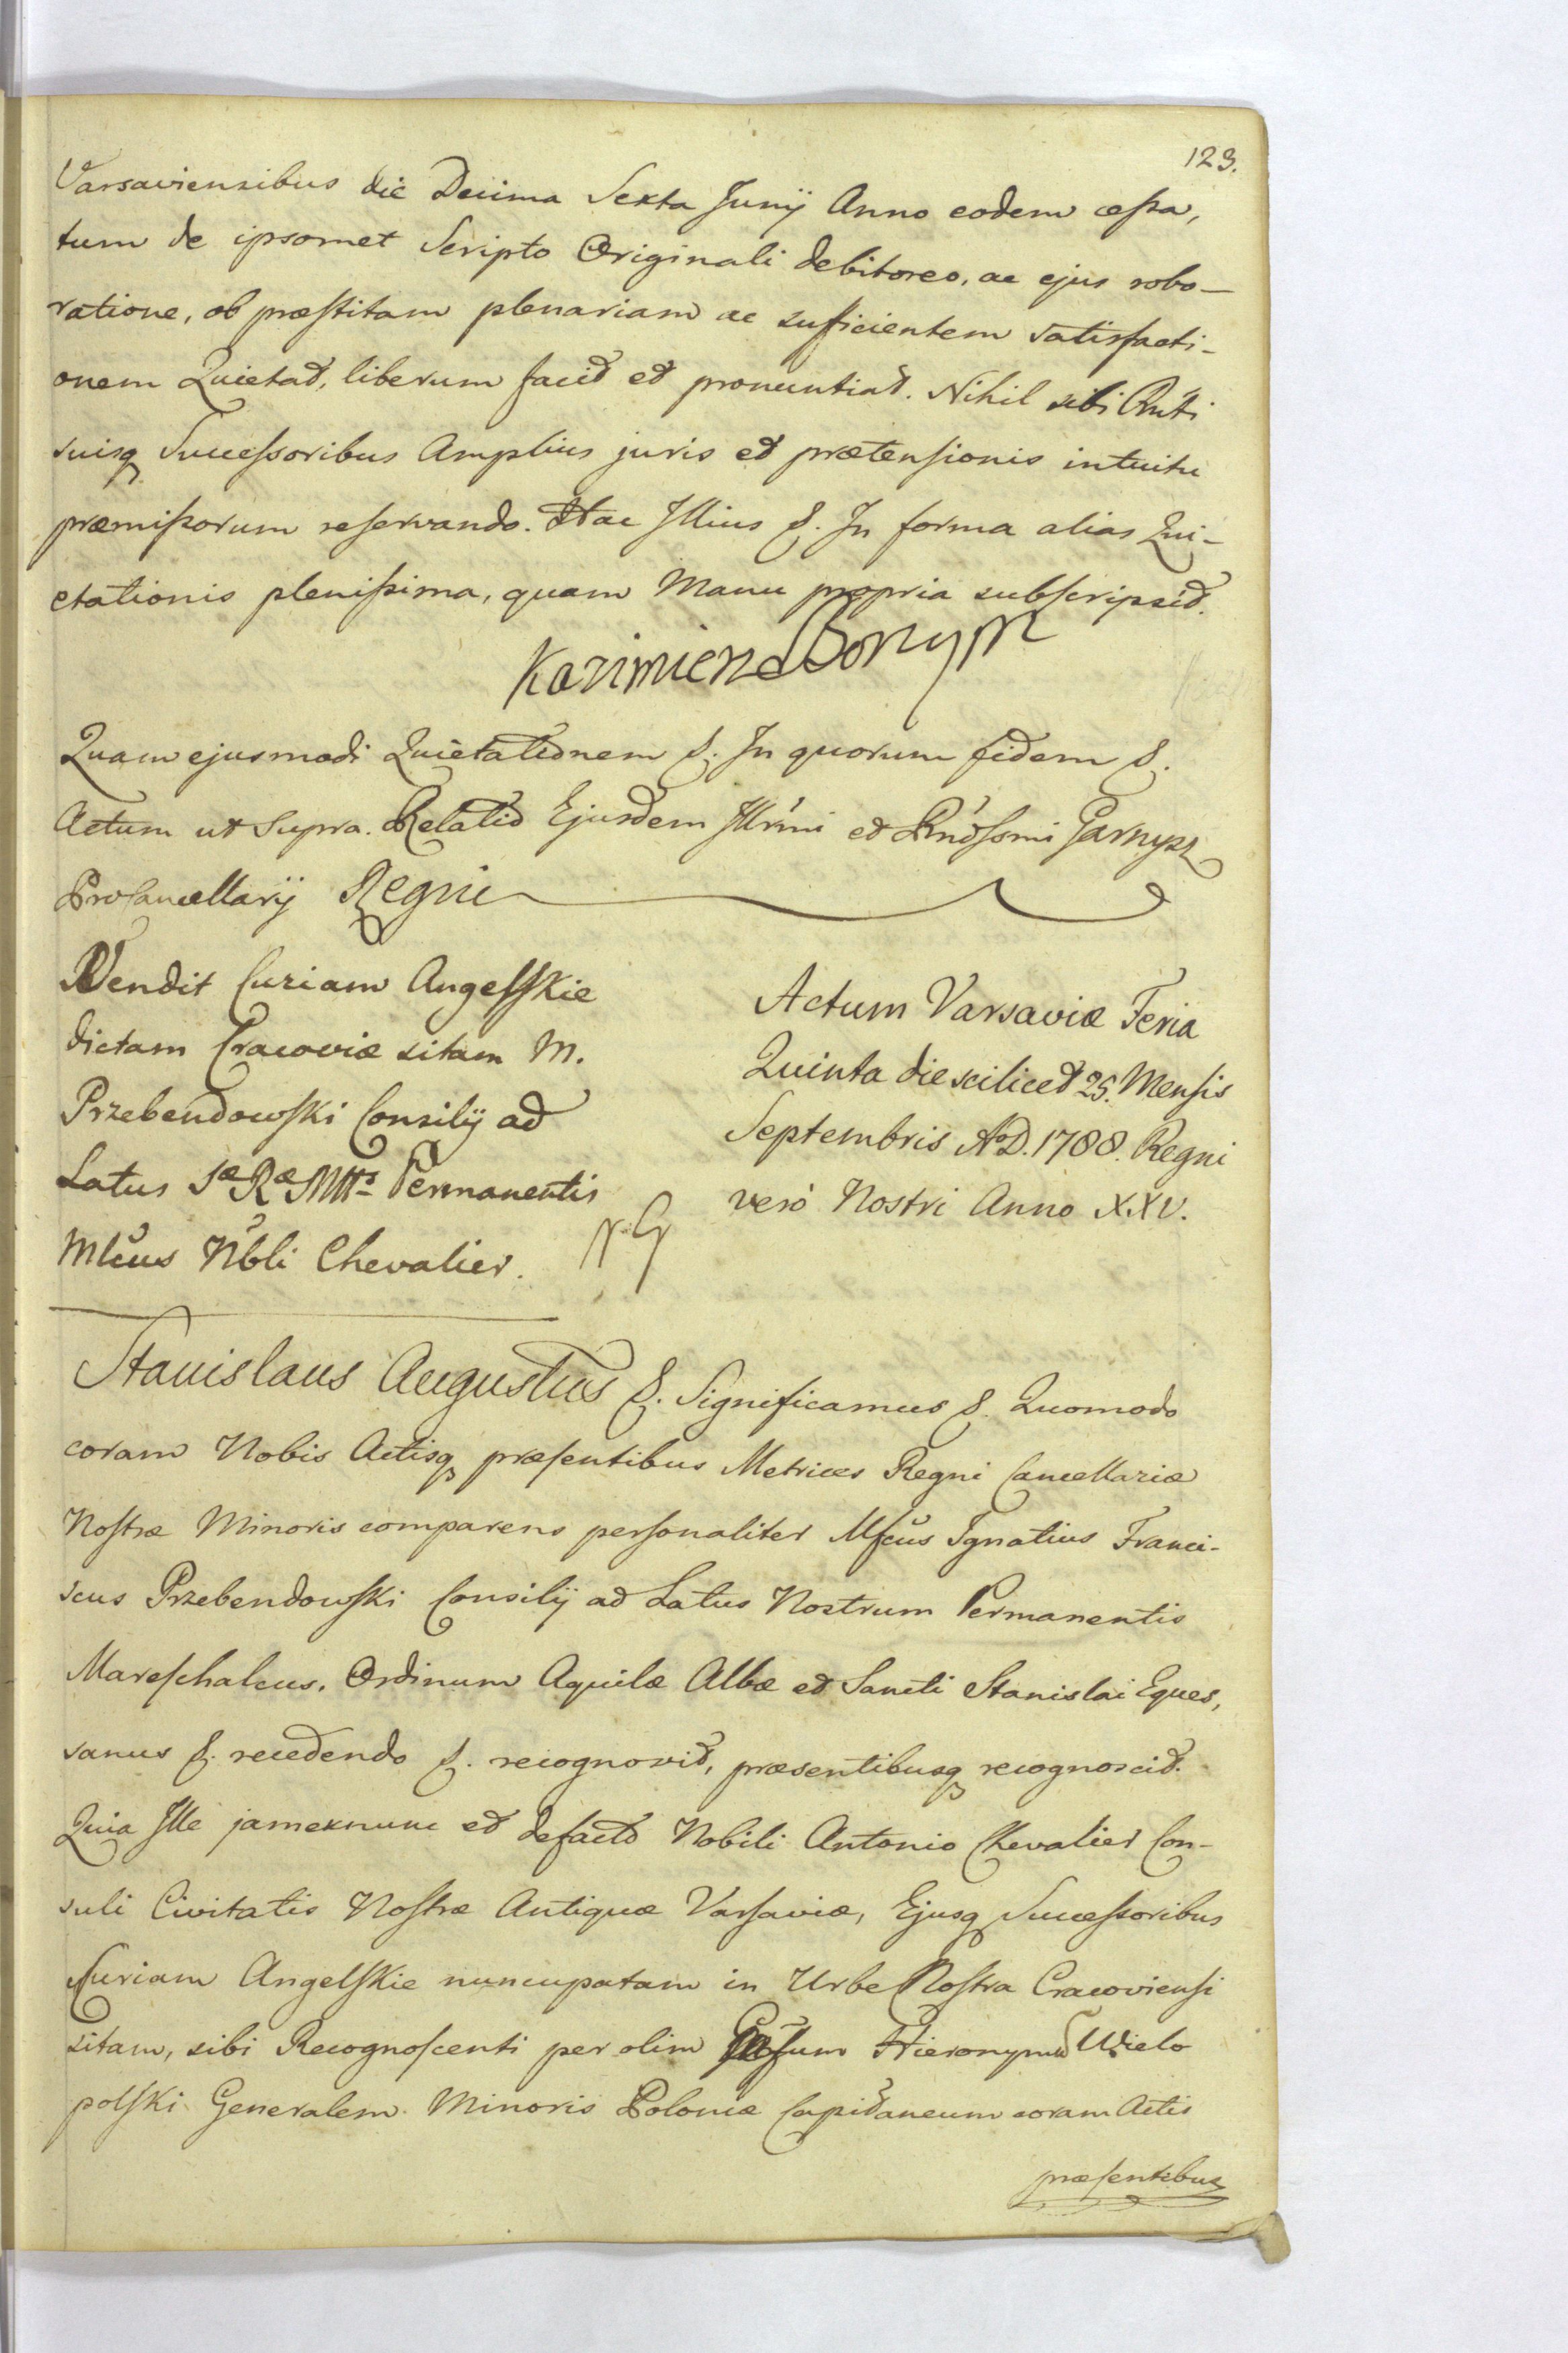 123.
Varsaviensibus die Decima Sexta Junij Anno eodem cessa,
tum de ipsomet Scripto Originali debitoreo, ac ejus robo–
ratione, ob præstitam plenariam ac sufficientem satisfacti–
onem Quietat, liberum facit et pronuntiat. Nihil sibi Rńti
suisq Successoribus Amplius juris et prætensionis intuitu
præmissorum reservando. Hac Illius &. In forma alias Qui–
etationis plenissima, quam Manu propria subscripsit.
Kazimierz
Quam ejusmodi Quietationem &. In quorum fidem &.
Actum ut Supra. Relatio Ejusdem Illrmi et Rndssmi Garnysz
ProCancellarij Regni
Vendit Curiam Angelskie
dictam Cracoviæ sitam M.
Przebendowski Consilij ad
Latus Sæ Ræ Mttis Permanentis
Mlcus Nbli Chevalier.
Actum Varsaviæ Feria
Quinta die scilicet 25. Mensis
Septembris AoD. 1788. Regni
verò Nostri Anno XXV.
Stanislaus Augustus &. Significamus &. Quomodo
coram Nobis Actisq præsentibus Metrices Regni Cancellariæ
Nostræ Minoris comparens personaliter Mfcus Ignatius Franci–
scus Przebendowski Consilij ad Latus Nostrum Permanentis
Mareschalcus, Ordinum Aquilæ Albæ et Sancti Stanislai Eques,
sanus &. recedendo &. recognovit, præsentibusq recognoscit.
Quia Ille jamexnunc et defacto Nobili Antonio Chevalier Con–
suli Civitatis Nostræ Antiquæ Varsaviæ, Ejusq Successoribus
Curiam Angelskie nuncupatam in Urbe Nostra Cracoviensi
sitam, sibi Recognoscenti per olim Hieronymu Wielo
polski Generalem Minoris Poloniæ Capitaneum coram Actis
præsentibus